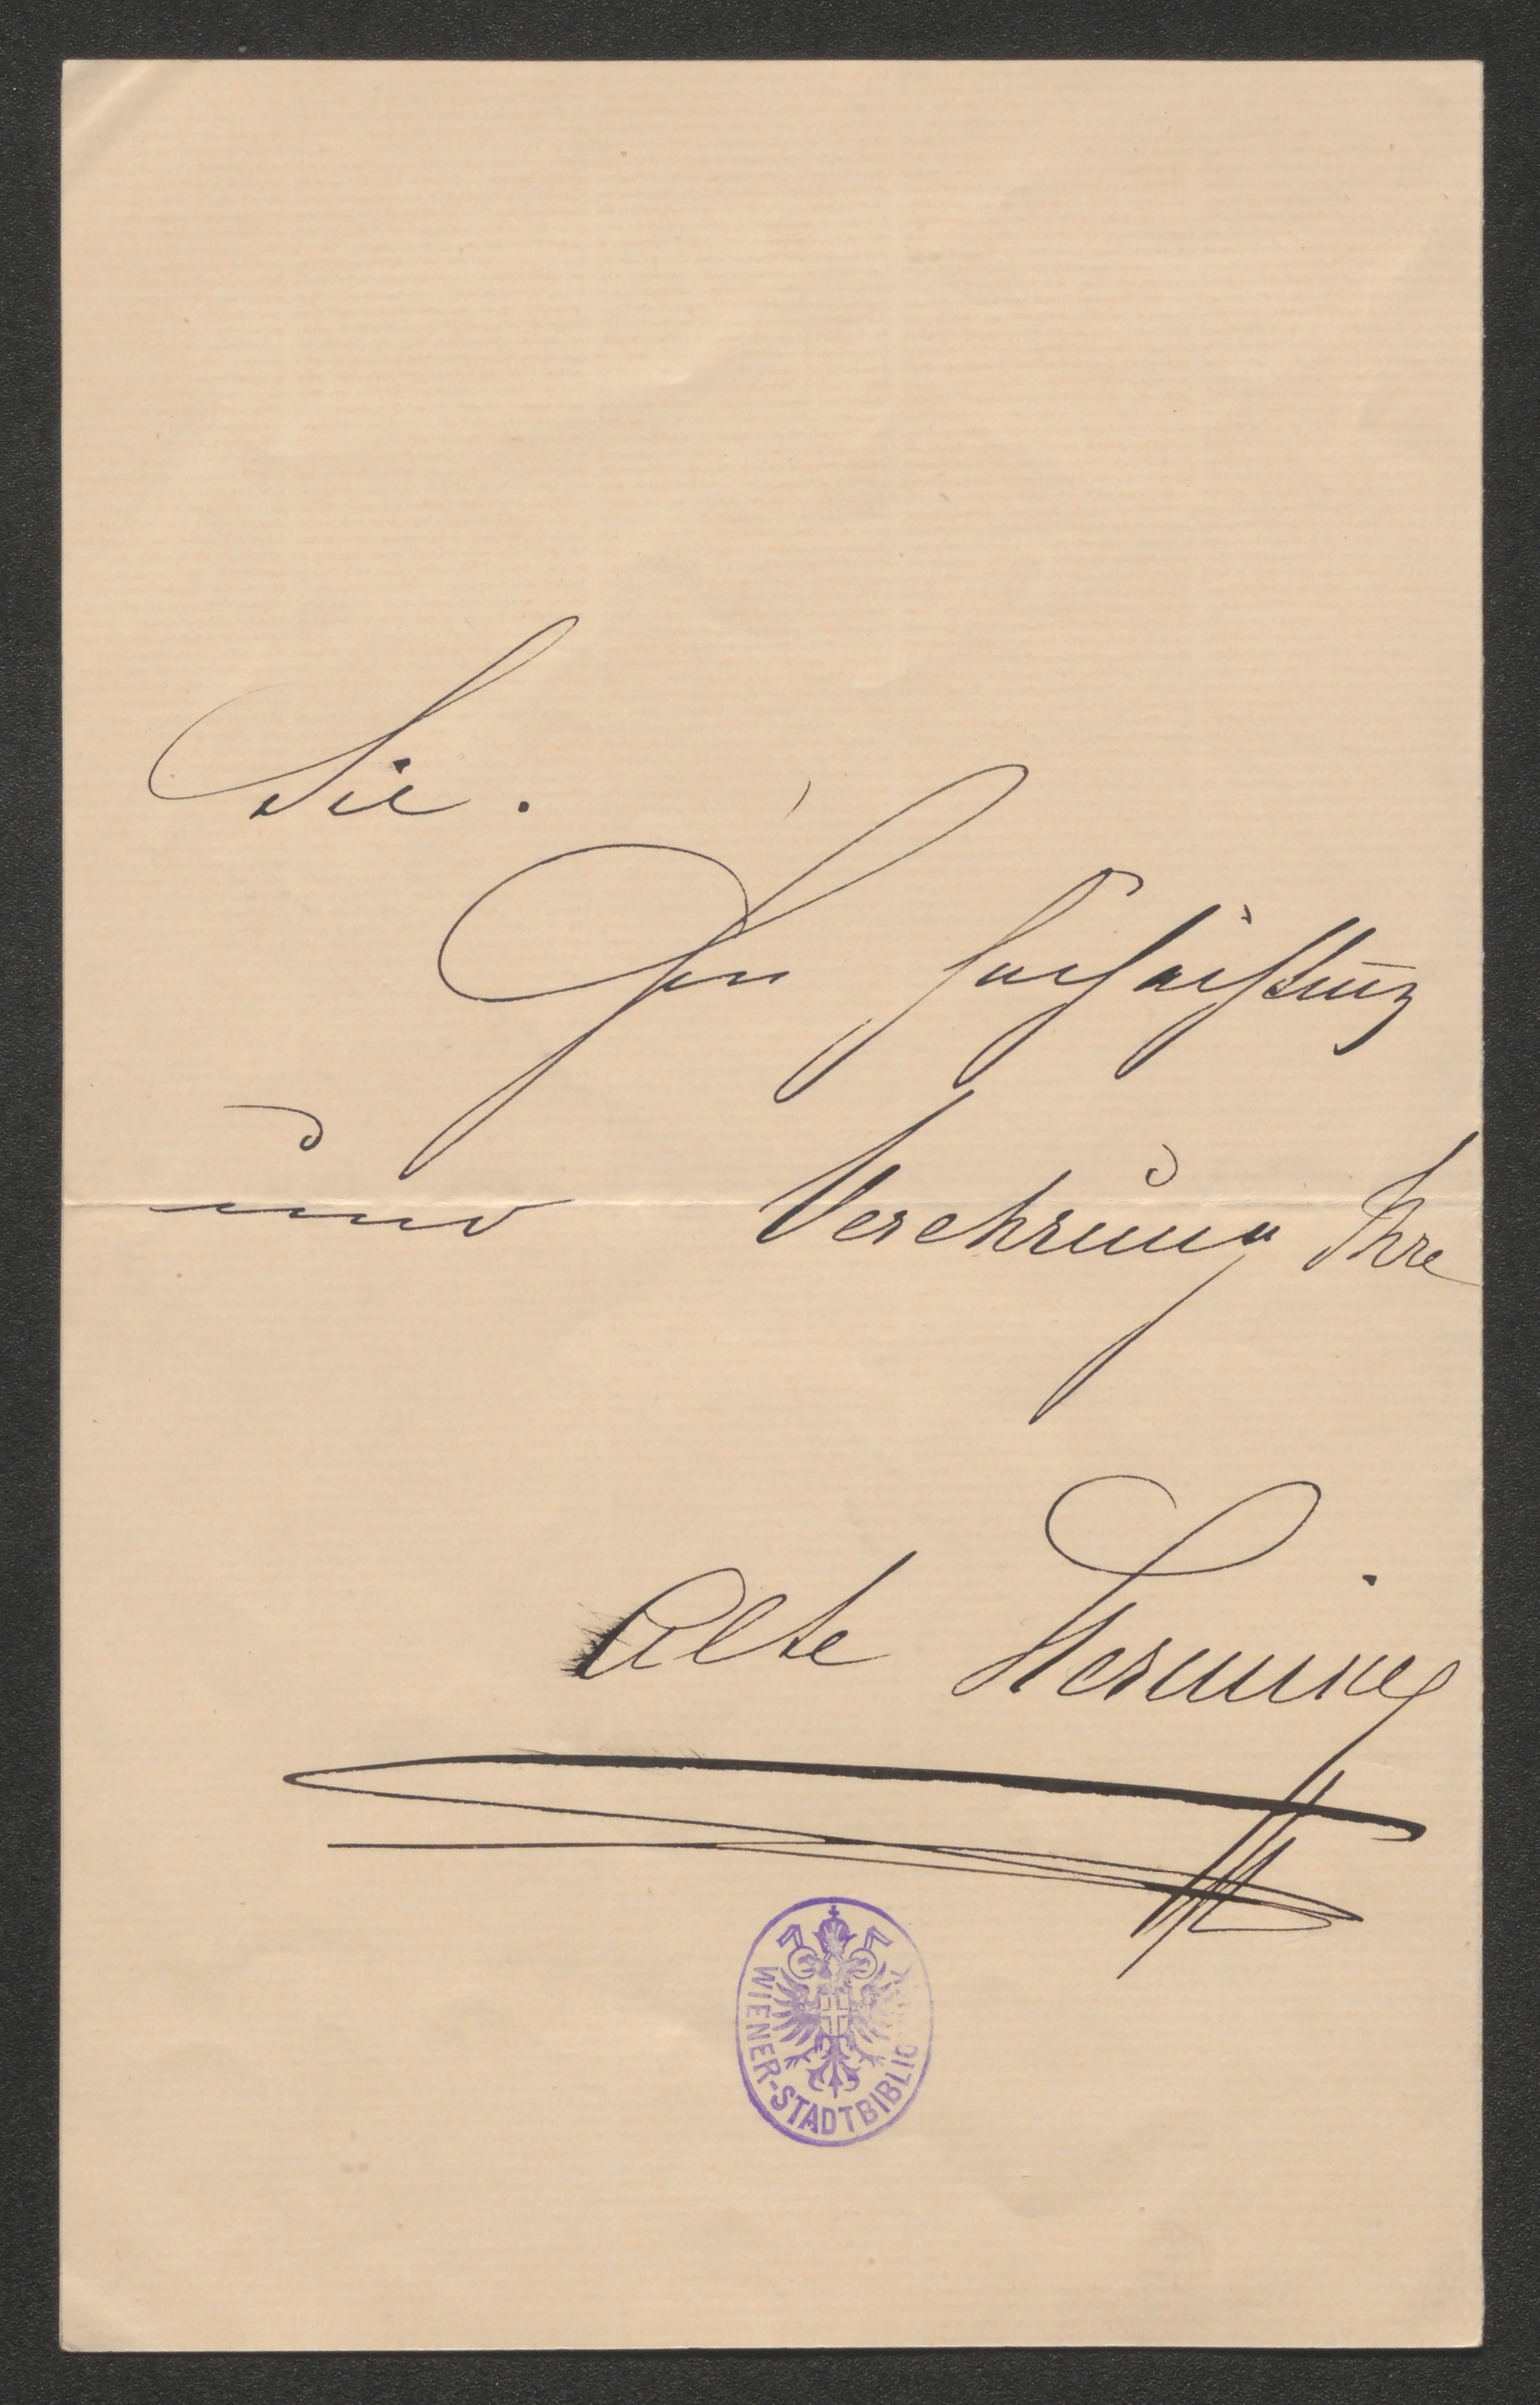 Sie.
In Hochachtung
und Verehrung Ihre
Alte Hermine
WIENER-STADTBIBLIO